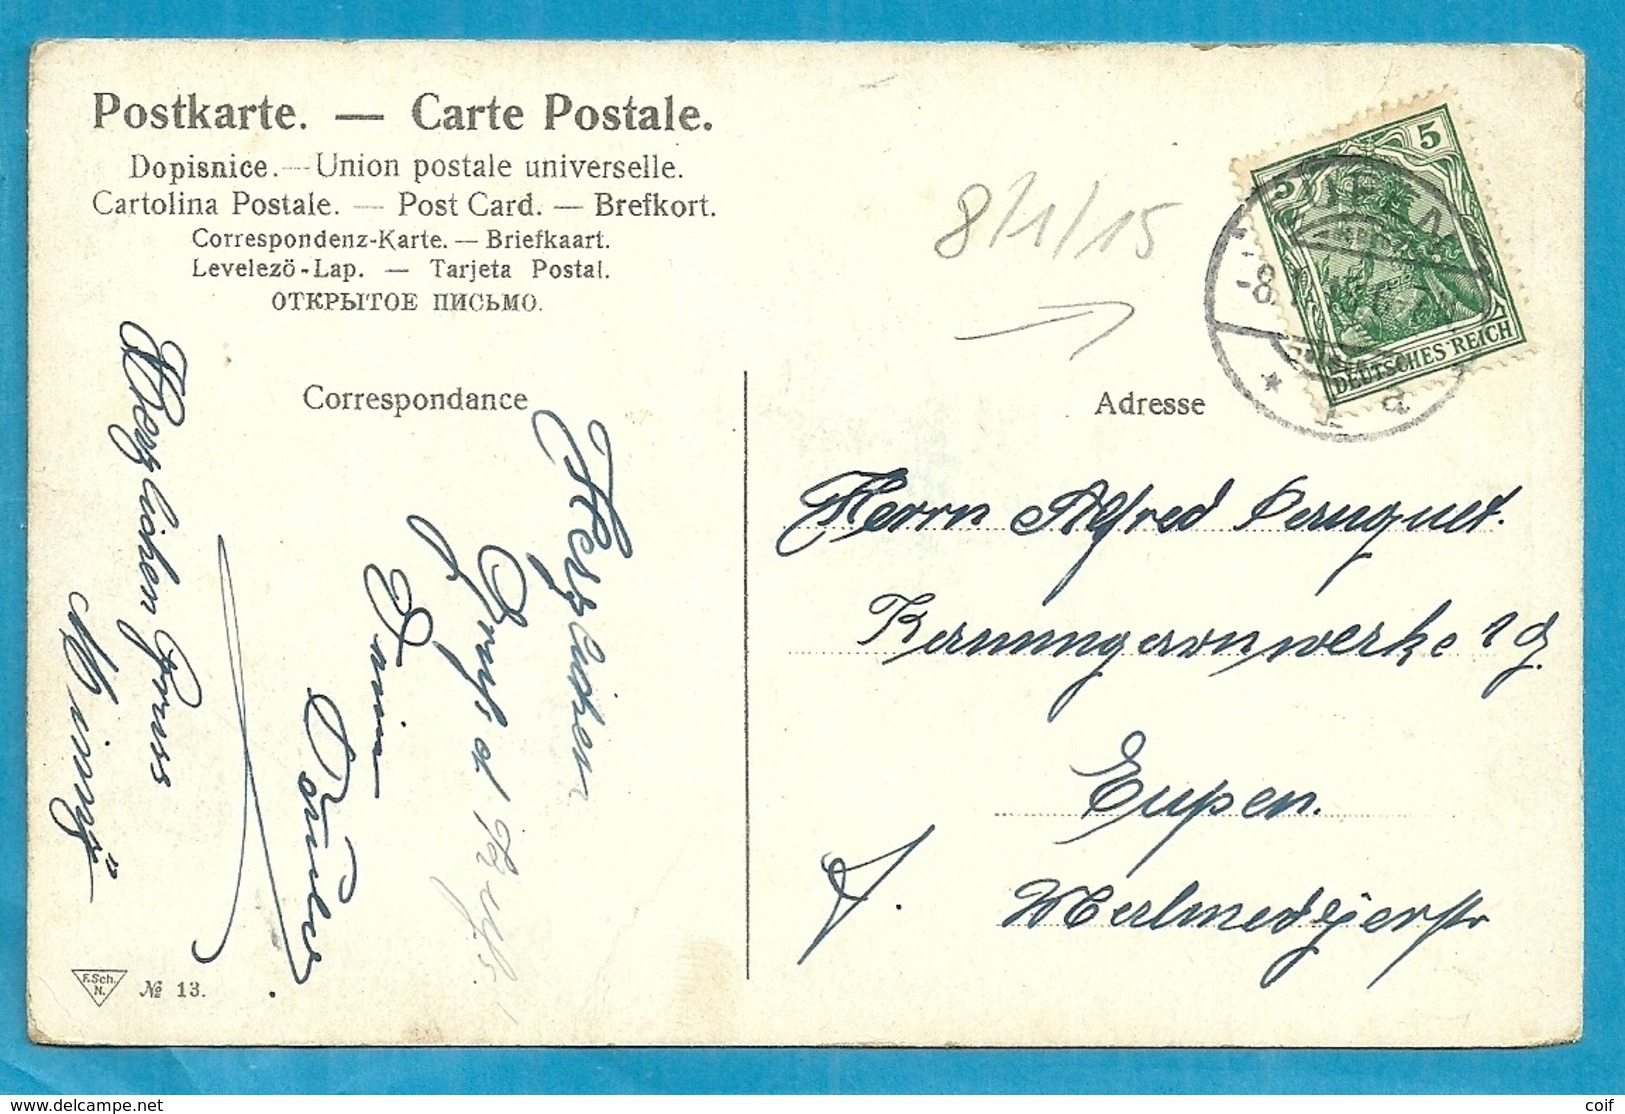 Postkarte. — Carte Postale.
Dopisnice. — Union postale universelle.
Cartolina Postale. — Post Card. — Brefkort.
Correspondenz-Karte. — Briefkaart.
Levelezö-Lap. — Tarjeta Postal.
ОТКРЫТОЕ ПИСЬМО.
8/1/15
5
5
DEUTSCHES REICH
-8.
* a
Correspondance
Adresse
Herrn Alfred Pauquet.
Kammgarnwerke
Eupen.
Malmedyerstr
Herzlichen Gruss
Herzlichen
Gruß
F.Sch.
N.
№ 13.
My Delcampe.net
coif